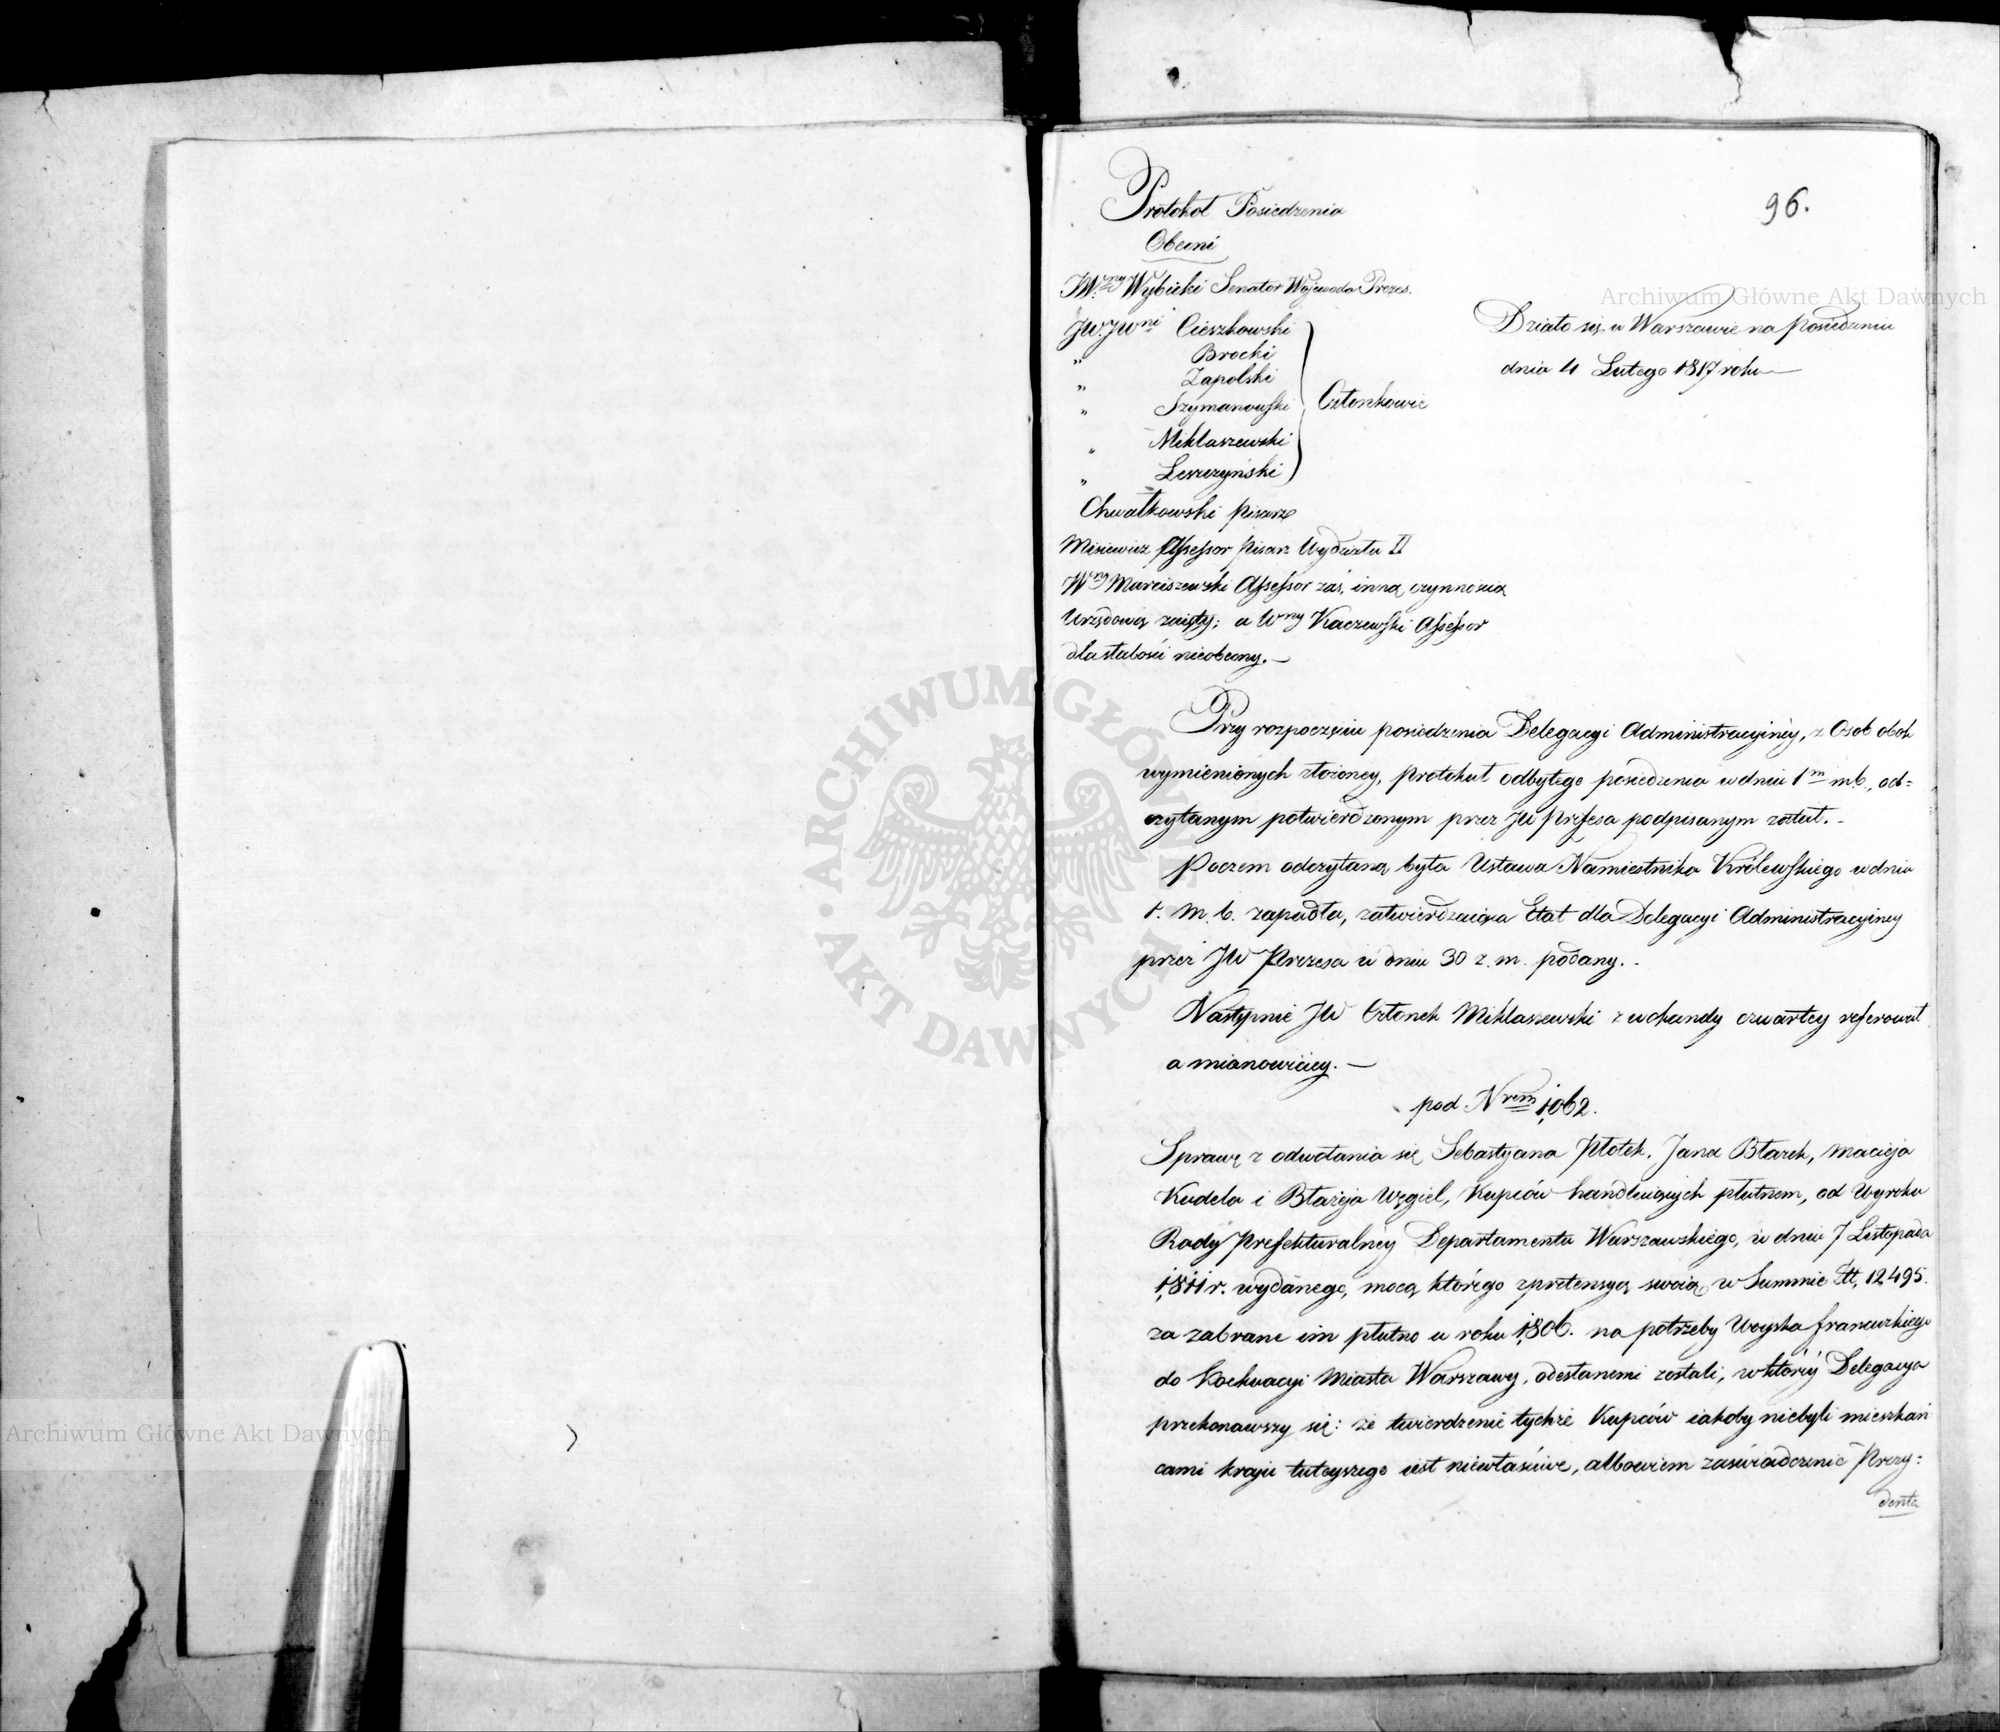 96.
Protokoł Posiedzenia
Obecni
JW.ny Wybicki Senator Wojewoda Prezes.
JW.JWni Cieszkowski
" Brocki
" Zapolski
" Szymanowski
" Miklaszewski
" Leszczyński
Członkowie
Chwatkowski pisarz
Misiewicz Assessor pisarz Wydziału II
Wny Marciszewski Assessor zaś, inną czynnością
Urzędową zaięty; a Wny Kaczewski Assessor
dla słabości nieobecny.—
Działo się w Warszawie na posiedzeniu
dnia 4 Lutego 1817 roku—
Przy rozpoczęciu posiedzenia Delegacyi Administracyiney, z Osob obok
wymienionych złożoney, protokuł odbytego posiedzenia w dniu 1m m.b., od=
czytanym potwierdzonym przez JW Prezesa podpisanym został.-
Poczem odczytaną była Ustawa Namiestnika Królewskiego w dniu
1. m. b. zapadła, zatwierdzaiąca Etat dla Delegacyi Administracyiney
przez JW Prezesa w dniu 30 z. m. podany.-
Następnie JW Członek Miklaszewski z wokandy czwartey referował
a mianowiciey.—
pod Nrem 1062.
Sprawę z odwołania się Sebastyana Płotek, Jana Błazek, Macieja
Kudela i Błażeja Węgiel, Kupców handluiących płutnem, od Wyroku
Rady Prefekturalney Departamentu Warszawskiego, w dniu 7 Listopada
1811 r. wydanego, mocą którego z pretensyą swoią w Summie Złł. 12,495.
za zabrane im płutno w roku 1806. na potrzeby Woyska francuzkiego
do Koekwacyi Miasta Warszawy, odesłanemi zostali, w którey Delegacya
przekonawszy się: że twierdzenie tychże Kupców iakoby niebyli mieszkań
cami kraju tuteyszego iest niewłaściwe, albowiem zaświadczenie Prezy=
denta
Archiwum Główne Akt Dawnych
ARCHIWUM GŁÓWNE
AKT DAWNYCH
Archiwum Główne Akt Dawnych